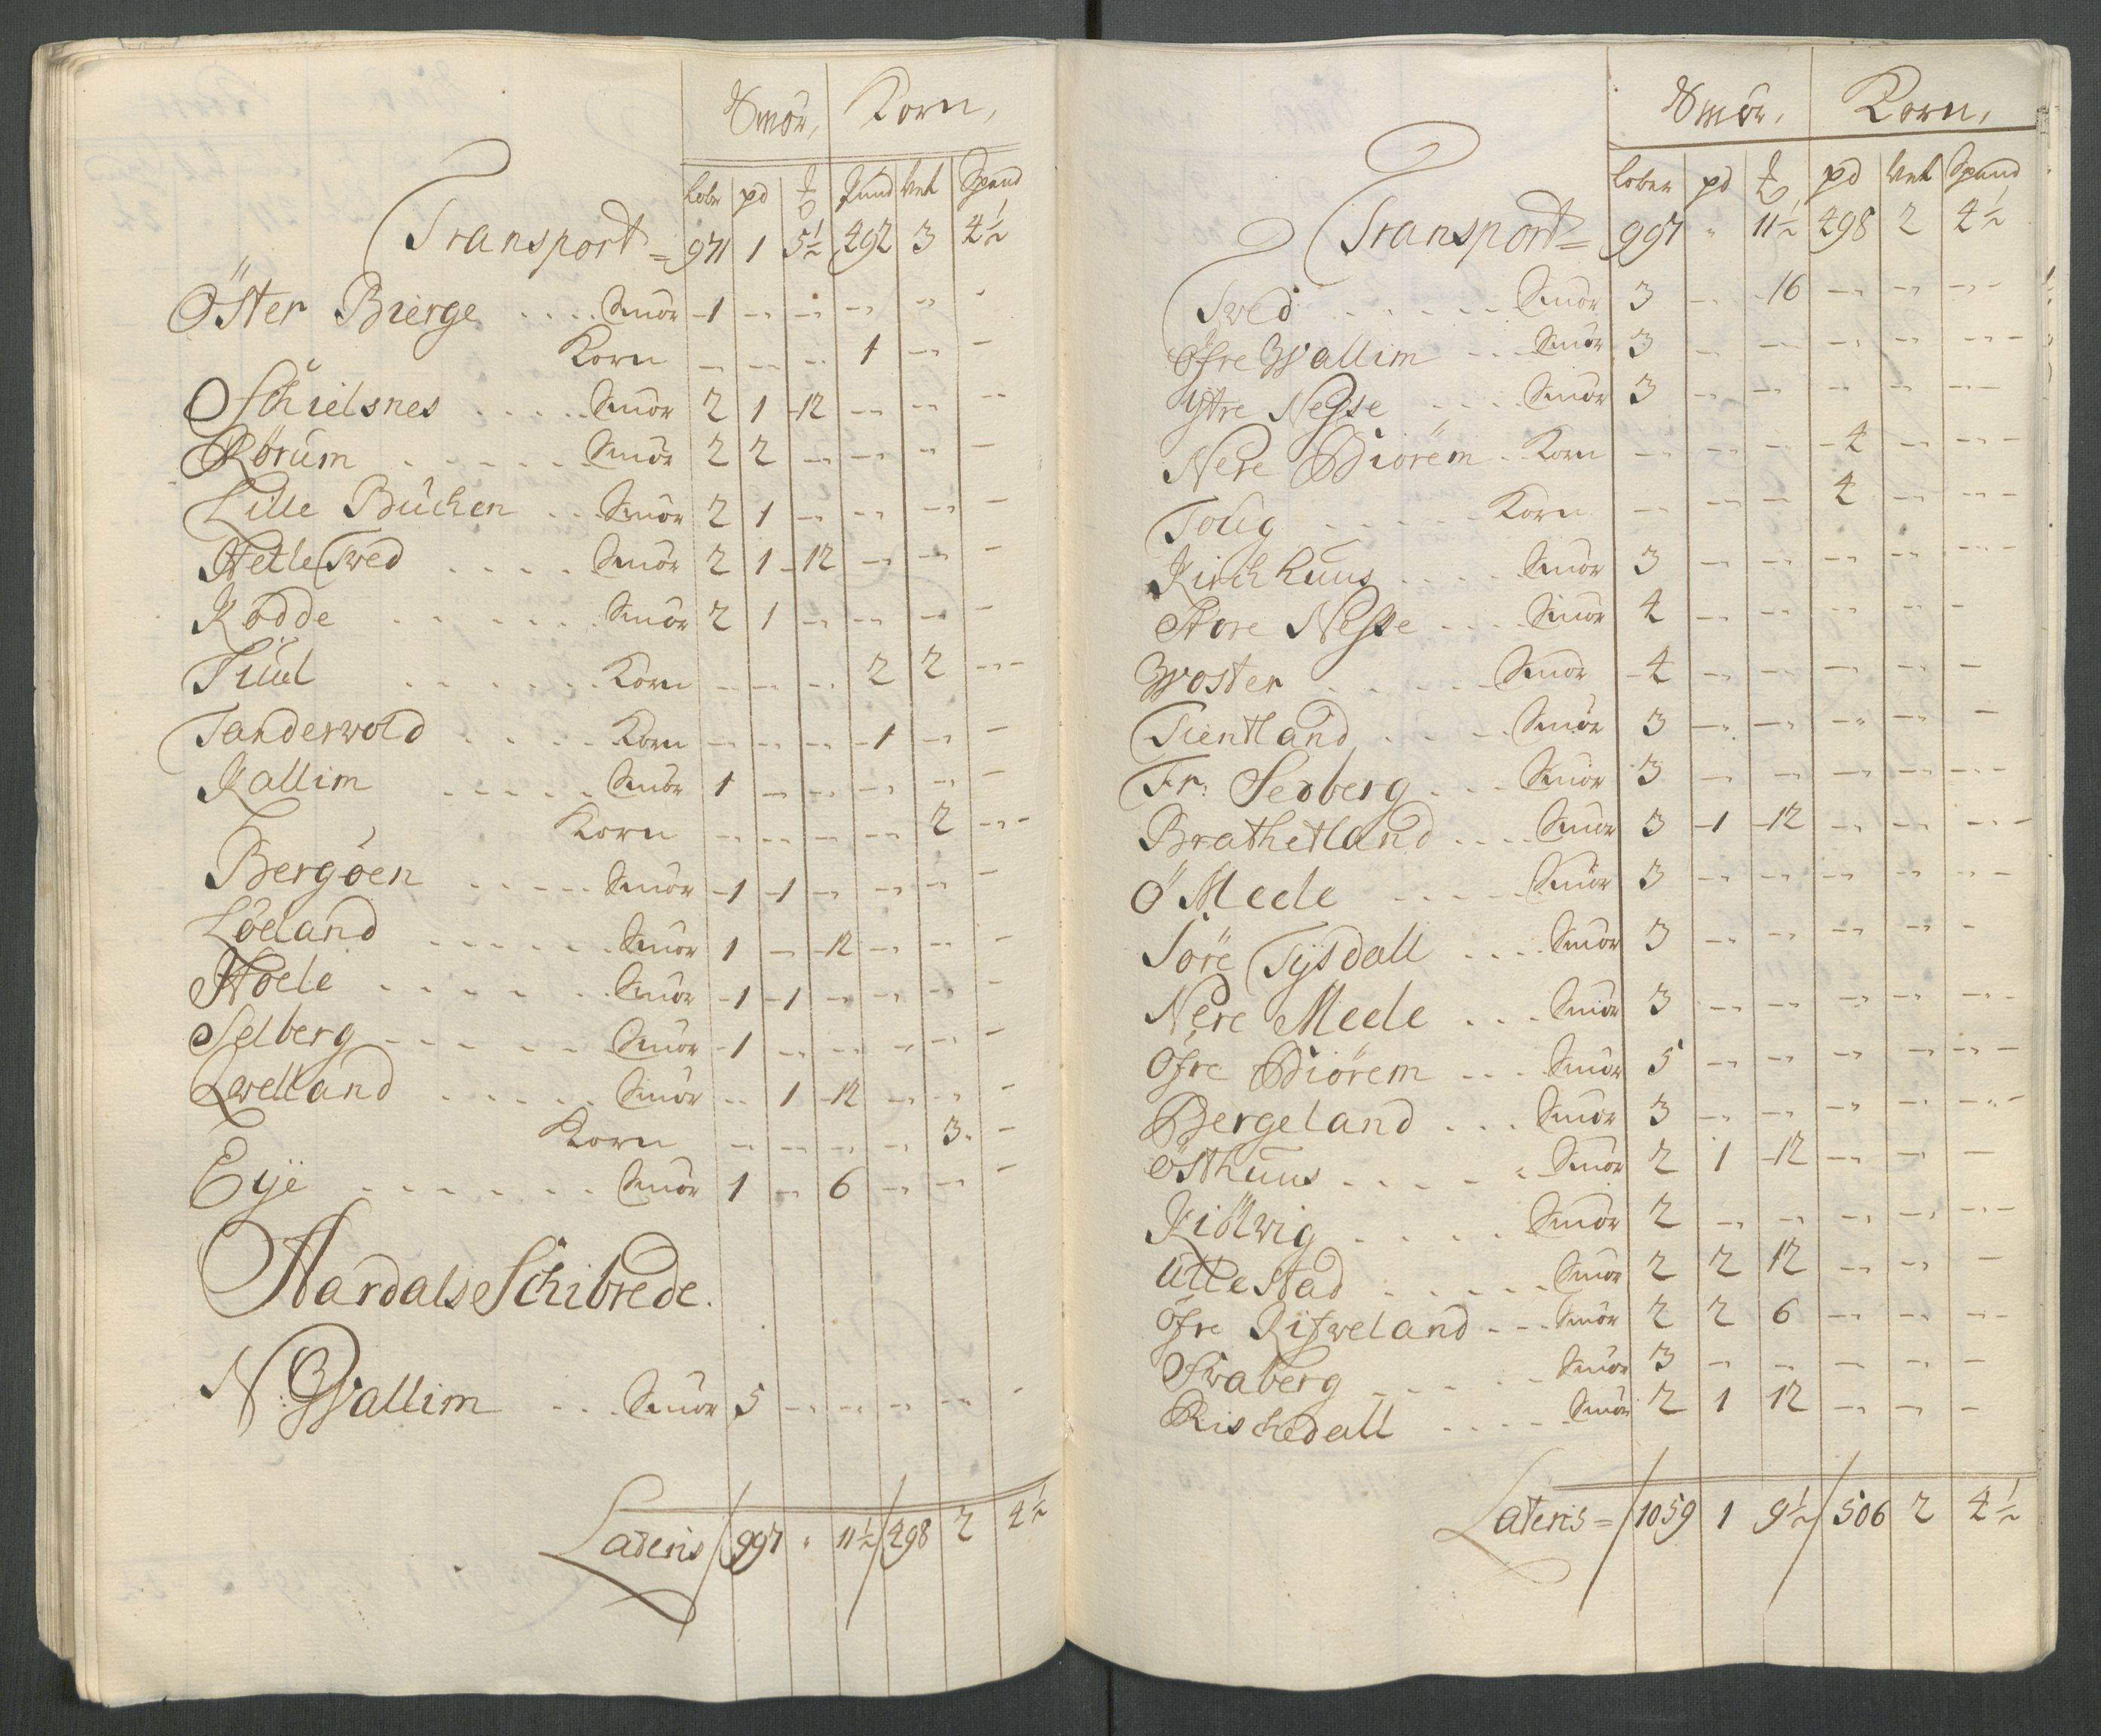 Smör, Korn,
Lober pd ℔ Pund Vet Spand
Transport = 971 1 5½ 492 3 4½
Öster Bierge .... Smör - 1 -- -- -- -- -
Korn -- -- -- 1 -- -
Schielsnes ..... Smör 2 1 - 12 -- -- --
Rörum ..... Smör 2 2 -- -- -- -
Lille Büchen .. Smör 2 1 -- -- -- -
HetleTved .... Smör 2 1 - 12 -- -- -
Kodde ...... Smör 2 1 -- -- -- -
Tüül ...... Korn -- -- -- 2 2 ---
Tanderwold ..... Korn -- -- -- - 1 -- -
Kallim ..... Smör 1 -- -- -- -- -
Korn -- -- -- -- 2 ---
Bergöen ..... Smör - 1 - 1 -- -- -- -
Löeland ...... Smör 1 -- - 12 -- -- -
Hoele ...... Smör - 1 - 1 -- -- -- -
Selberg ----- Smör - 1 -- -- -- -- -
Qwelland ..... Smör -- 1 - 12 -- -- -
Korn -- -- -- -- 3. -
Eÿe ...... Smör 1 -- 6 -- -- -
Hardals Schibrede.
N: Wallim ... Smör 5 -- -- -- -- -
Lateris 997 " 11½ 498 2 4½
Smör, Korn,
Lober pd ℔ pd Vet Spand
Transport = 997 " 11½ 498 2 4½
Tved ...... Smör 3 -- - 16 -- -- ---
Öfre Wallim .. Smör 3 -- -- -- -- ---
Ytre Nesse ... Smör 3 -- -- -- -- ---
Nere Biörem . Korn -- -- -- - 4 -- ---
Toug ..... Korn -- -- -- 4 -- ---
Kirchhuus .... Smör 3 -- -- -- -- ---
Store Nesse .... Smör 4 -- -- -- -- -
Woster ..... Smör - 4 -- -- -- -- -
Tientland .... Smör 3 -- -- -- -- -
Fr: Seoberg ... Smör 3 -- -- -- -- ---
Brathetland .... Smör 3 - 1 - 12 -- -- ---
Ö Meele ..... Smör 3 -- -- -- -- ---
Söre Tÿsdall .... Smör 3 -- -- -- -- -
Nere Meele ... Smör 3 -- -- -- -- ---
Öfre Biörem ... Smör 5 -- -- -- -- ---
Bergeland ... Smör 3 -- -- -- -- ---
Östhuus ..... Smör 2 1 - 12 -- -- -
Kiölvig .... Smör 2 -- -- -- -- ---
UlleStad ..... Smör 2 2 12 -- -- -
Öfre Rifweland --- Smör 2 2 6 -- -- ---
Svaberg ..... Smör 3 -- -- -- -- -
Rischedall .... Smör 2 1 12 -- -- -
Lateris = 1059 1 9½ 506 2 4½